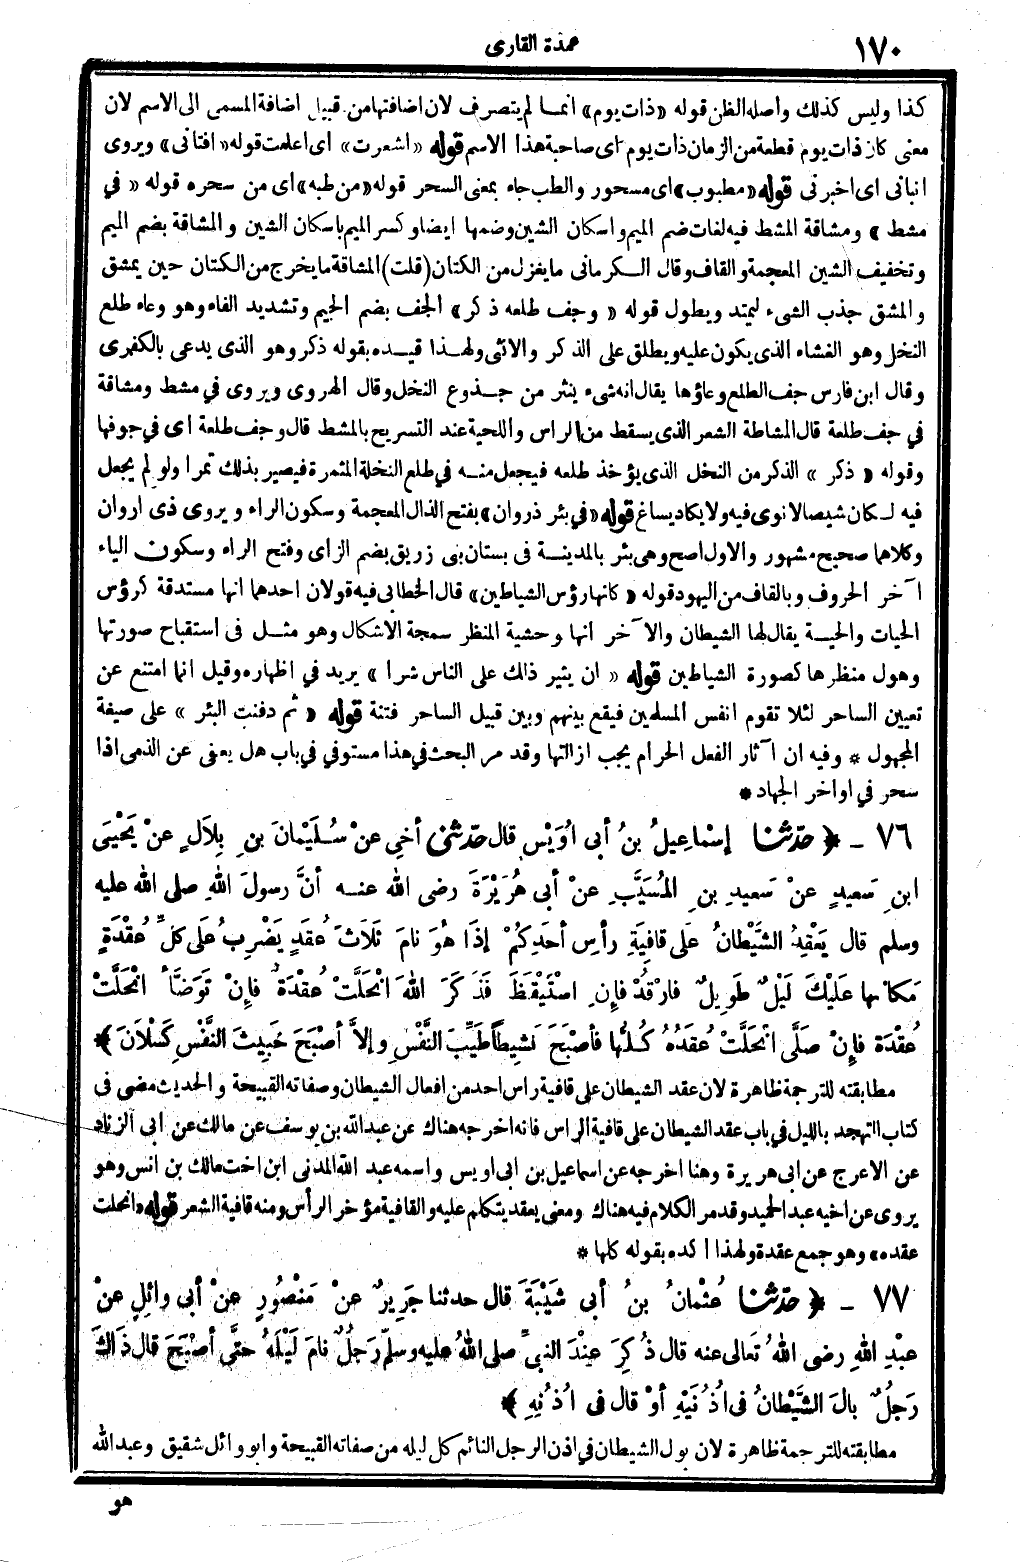 ١٧٠
عمدة القارى
كذا وليس كذلك وأصله الظن قوله «ذات يوم» انما لم يتصرف لان اضافتها من قبيل اضافة المسمى الى الاسم لان
معنى كان ذات يوم قطعة من الزمان ذات يوم أى صاحبة هذا الاسم قوله «اشعرت» اى اعلمت قوله «افتانى» ويروى
انبانى اى اخبرنى قوله «مطبوب» اى مسحور والطب جاء بمعنى السحر قوله «من طبه» اى من سحره قوله «في
مشط» ومشاقة المشط فيه لغات ضم الميم واسكان الشين وضمها ايضا وكسر الميم باسكان الشين والمشاقة بضم الميم
وتخفيف الشين المعجمة والقاف وقال الكرمانى ما يغزل من الكتان (قلت) المشاقة ما يخرج من الكتان حين يمشق
والمشق جذب الشىء ليمتد ويطول قوله «وجف طلعه ذكر» الجف بضم الجيم وتشديد الفاء وهو وعاء طلع
النخل وهو الغشاء الذى يكون عليه ويطلق على الذكر والانثى ولهذا قيده بقوله ذكر وهو الذى يدعى بالكفرى
وقال ابن فارس جف الطلع وعاؤها يقال انه شىء ينثر من جذوع النخل وقال الهروى ويروى في مشط ومشاقة
في جف طلعة قال المشاطة الشعر الذى يسقط من الراس واللحية عند التسريح بالمشط قال وجف طلعة اى في جوفها
وقوله «ذكر» الذكر من النخل الذى يؤخذ طلعه فيجعل منه في طلع النخلة المثمرة فيصير بذلك تمرا ولو لم يجعل
فيه لكان شيصا لا نوى فيه ولا يكاد يساغ قوله «في بئر ذروان» بفتح الذال المعجمة وسكون الراء ويروى ذى اروان
وكلاهما صحيح مشهور والاول اصح وهى بئر بالمدينة فى بستان بنى زريق بضم الزاى وفتح الراء وسكون الياء
آخر الحروف وبالقاف من اليهود قوله «كانها رؤس الشياطين» قال الخطابى فيه قولان احدهما انها مستدقة كرؤس
الحيات والحية يقال لها الشيطان والآخر انها وحشية المنظر سمجة الاشكال وهو مثل فى استقباح صورتها
وهول منظرها كصورة الشياطين قوله «ان يثير ذلك على الناس شرا» يريد في اظهاره وقيل انما امتنع عن
تعيين الساحر لئلا تقوم انفس المسلمين فيقع بينهم وبين قبيل الساحر فتنة قوله «ثم دفنت البئر» على صيغة
المجهول * وفيه ان آثار الفعل الحرام يجب ازالتها وقد مر البحث في هذا مستوفي في باب هل يعفى عن الذمى اذا
سحر في اواخر الجهاد *
٧٦ ـ ﴿ حدّثنا إِسْماعِيلُ بنُ أبى أُوَيْسٍ قال حدّثنى أخِي عنْ سُلَيْمَانَ بنِ بِلاَلٍ عنْ يَحْيَى
ابنِ سَعيدٍ عنْ سَعيدِ بنِ المُسَيَّبِ عنْ أبى هُرَيْرَةَ رضى الله عنه أنَّ رسولَ اللهِ صلى الله عليه
وسلم قال يَعْقِدُ الشَّيْطانُ على قافِيَةِ رأسِ أحَدِكُمْ إذَا هُوَ نامَ ثَلاَثَ عُقَدٍ يَضْرِبُ على كلِّ عُقْدَةٍ
مَكانَها عَلَيْكَ لَيْلٌ طَوِيلٌ فارْقُدْ فإِنِ اسْتَيْقَظَ فَذَكَرَ اللهَ انْحَلَّتْ عُقْدَةٌ فإِنْ تَوَضَّأَ انْحَلَّتْ
عُقْدَة فإِنْ صَلَّى انْحَلَّتْ عُقَدُهُ كُلُّها فأصْبَحَ نَشِيطاً طَيِّبَ النَّفْسِ وإلاَّ أصْبَحَ خَبِيثَ النَّفْسِ كَسْلاَنَ ﴾
مطابقته للترجمة ظاهرة لان عقد الشيطان على قافية راس احد من افعال الشيطان وصفاته القبيحة والحديث مضى فى
كتاب التهجد بالليل في باب عقد الشيطان على قافية الراس فانه اخرجه هناك عن عبد الله بن يوسف عن مالك عن ابى الزناد
عن الاعرج عن ابى هريرة وهنا اخرجه عن اسماعيل بن ابى اويس واسمه عبد الله المدنى ابن اخت مالك بن انس وهو
يروى عن اخيه عبد الحميد وقد مر الكلام فيه هناك ومعنى يعقد يتكلم عليه والقافية مؤخر الرأس ومنه قافية الشعر قوله «انحلت
عقده» وهو جمع عقدة ولهذا اكده بقوله كلها *
٧٧ ـ ﴿ حدّثنا عُثْمانُ بنُ أبى شَيْبَةَ قال حدثنا جَرِيرٌ عنْ مَنْصُورٍ عنْ أبى وائِلٍ عنْ
عبْدِ اللهِ رضى اللهُ تَعالى عنه قال ذُكِرَ عِنْدَ النبىِّ صلى اللهُ عليه وسلّم رَجلٌ نامَ لَيْلَهُ حتَّى أصْبَحَ قال ذَاكَ
رَجُلٌ بالَ الشَّيْطانُ فى أُذُنَيْهِ أوْ قال فى أُذُنِهِ ﴾
مطابقته للترجمة ظاهرة لان بول الشيطان في اذن الرجل النائم كل ليله من صفاته القبيحة وابو وائل شقيق وعبد الله
هو